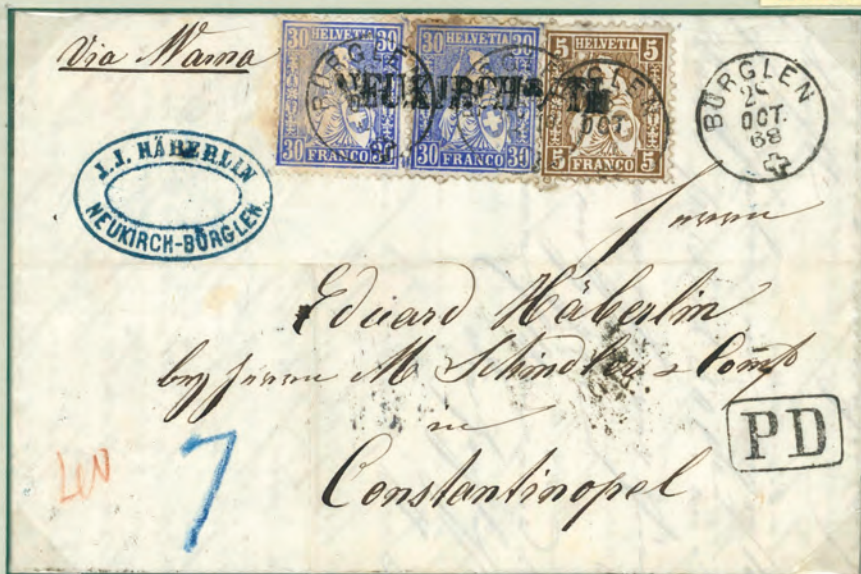 Via Warna
30 HELVETIA 30
30 FRANCO 30
30 HELVETIA 30
30 FRANCO 30
5 HELVETIA 5
5 FRANCO 5
BÜRGLEN
OCT.
BÜRGLEN
OCT.
68
J. J. HÄBERLIN
NEUKIRCH-BÜRGLEN
Herrn
Eduard Häberlin
bey Herrn M Schindler & Comp
in
Constantinopel
PD
7